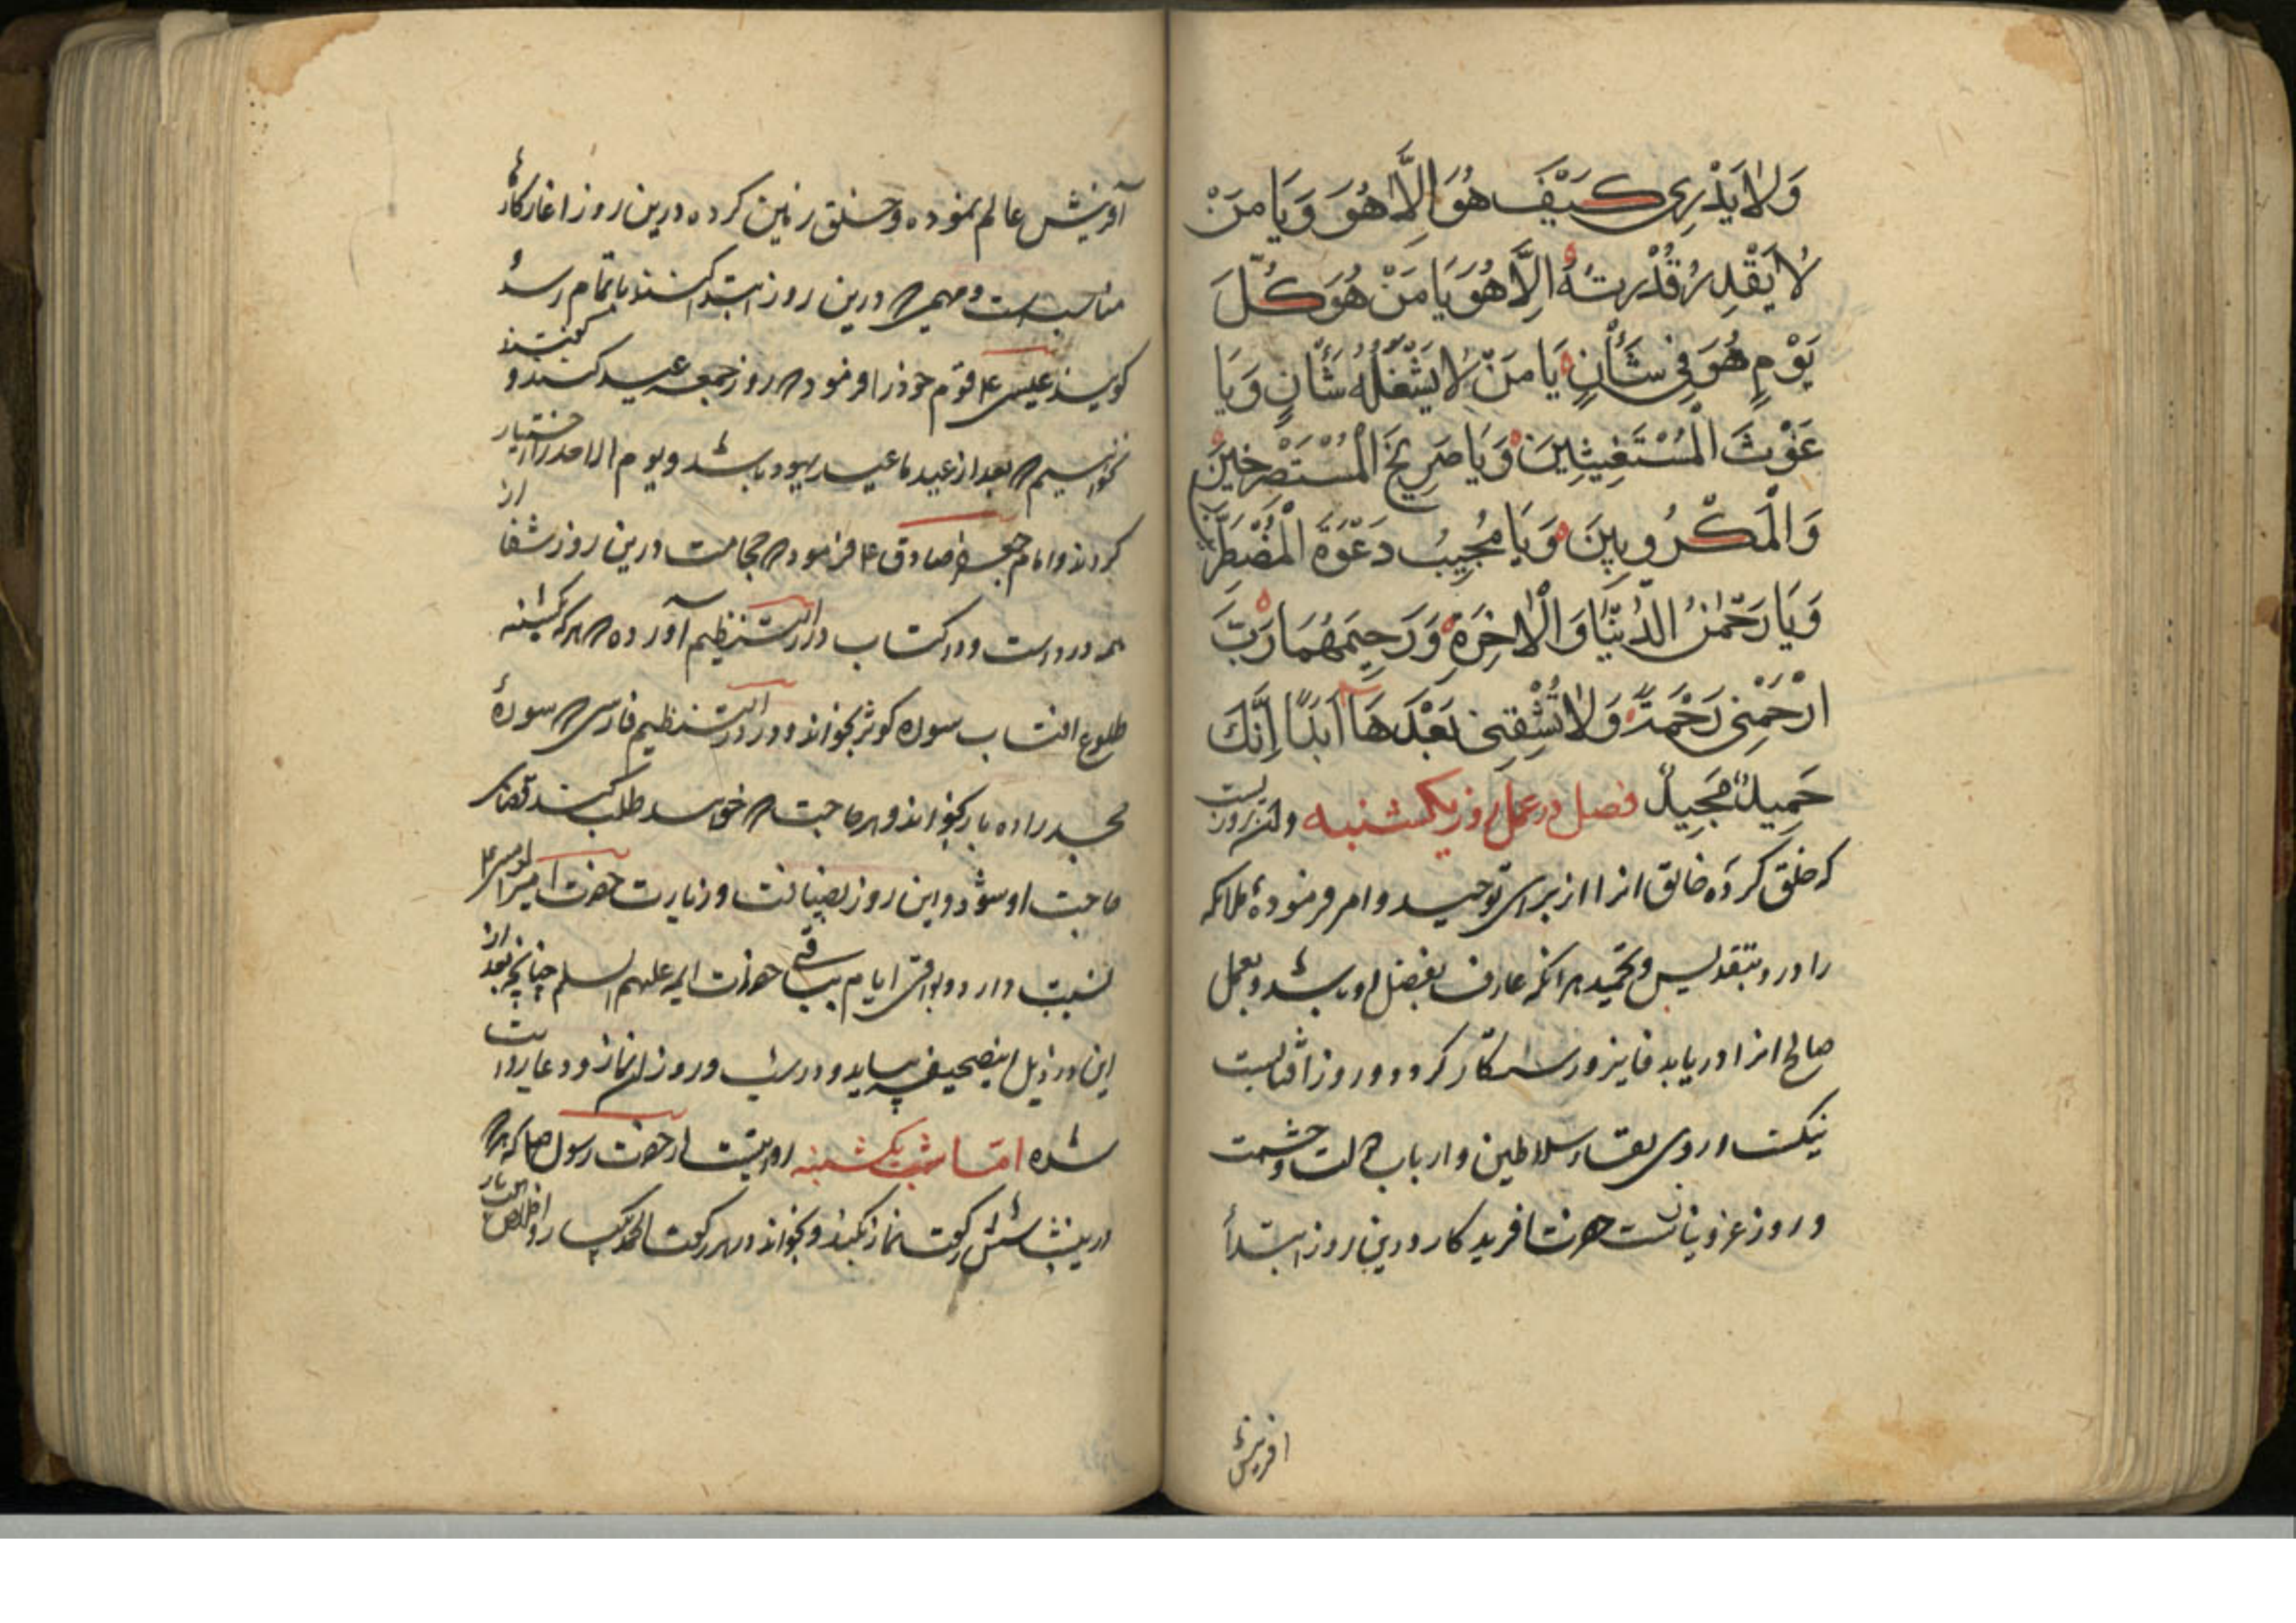 وَلَا يَدْرِي كَيْفَ هُوَ إِلَّا هُوَ وَيَا مَنْ
لَا يَقْدِرُ قُدْرَتَهُ إِلَّا هُوَ يَا مَنْ هُوَ كُلَّ
يَوْمٍ هُوَ فِي شَأْنٍ يَا مَنْ لَا يَشْغَلُهُ شَأْنٌ وَيَا
غَوْثَ الْمُسْتَغِيثِينَ وَيَا صَرِيخَ الْمُسْتَصْرِخِينَ
وَالْمَكْرُوبِينَ وَيَا مُجِيبُ دَعْوَةَ الْمُضْطَرِّينَ
وَيَا رَحْمٰنُ الدُّنْيَا وَالْآخِرَةِ وَرَحِيمَهُمَا رَبِّ
ارْحَمْنِي رَحْمَةً وَلَا تُشْقِنِي بَعْدَهَا أَبَدًا إِنَّكَ
حَمِيدٌ مَجِيدٌ فصل در عمل روز یکشنبه وان روزیست
که خلق کرده خالق انرا از برای توحید و امر فرموده ملائکه
را درو بتقدیس و تحمید هر انکه عارف بفضل او باشد و بعمل
صالح انرا دریابد فایز و رستکار کردد و روز افتابست
نیکست از وی لقاء سلاطین و ارباب دولت و حشمت
و روز عز و حضرت افریدکار درین روز ابتداء
افرینش
آفرینش عالم نموده و خلق زمین کرده درین روز اغاز کارها
مناسبست و مهمی که درین روز ابتدا کنند باتمام رسد
کویند عیسی ع قوم خود را فرمود که روز جمعه عید کنند و کفتند
نخواهیم که بعد از عید ما عید یهود باشد و یوم الاحد را اختیار
کردند و امام جعفر صادق ع فرمود که حجامت درین روز شفا از
همه درد است و در کتاب در التنظیم آورده که هر که یکشنبه
طلوع افتاب سوره کوثر بخواند و در در التنظیم فارسی که سوره
محمد را ده بار بخواند و هر حاجت که خواهد طلب کند قضای
حاجت او شود و این روز بضیافت و زیارت حضرت امیر المومنین ع
نسبت دارد و بواقی ایام بباقی حضرات ایمه علیهم السلم چنانچه بعد از
این در ذیل اینصحیفه بیاید و در شب و روز ان نماز و دعا روایت
شده اما شب یکشنبه روایتست از حضرت رسول ص که هر که
درینشب شش رکعت نماز بکند و بخواند در هر رکعت الحمد یکبار و اخلاص هفت بار